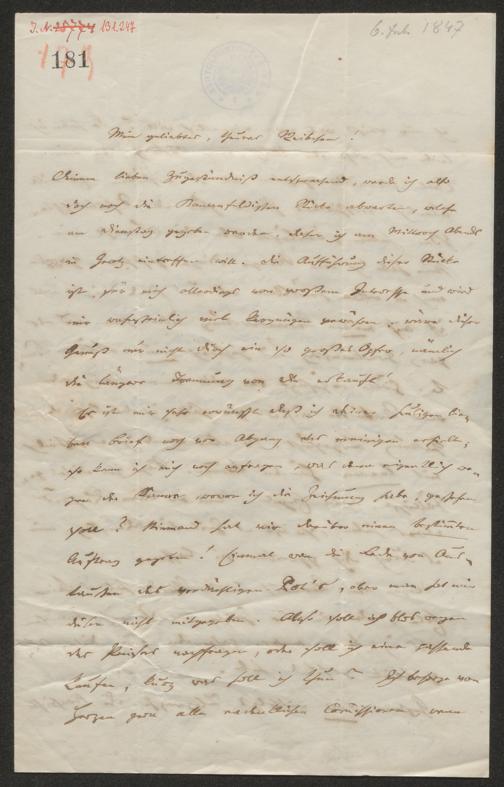 I. N. 131.247
6. Juli 1847
181
Mein geliebtes, theures Weibchen!
Deinem lieben Zugeständniß entsprechend, werde ich also
doch noch die Bauernfeldischen Stücke abwarten, welche
am Dienstag gegeben werden, daher ich am Mittwoch Abends
in Gratz eintreffen will. Die Aufführung dieser Stücke
ist für mich allerdings von großem Interesse und wird
mir wahrscheinlich viel Vergnügen gewähren, wäre dieser
Genuß nur nicht durch ein so großes Opfer, nämlich
die längere Trennung von Dir erkauft!
Es ist mir sehr erwünscht daß ich Deinen heutigen lie-
ben Brief noch vor Abgang des meinigen erhielt;
so kann ich mich noch anfragen, was denn eigentlich we-
gen der, wovon ich die Zeichnung habe, geschehen
soll? Niemand hat mir darüber einen bestimmten
Auftrag gegeben! Einmal war die Rede von Aus-
tauschen des vorräthigen, aber man hat mir
diesen nicht mitgegeben. Also soll ich blos wegen
des Preises nachfragen, oder soll ich eine passende
kaufen, kurz was soll ich thun? Ich besorge von
Herzen gern alle Commissionen, wenn